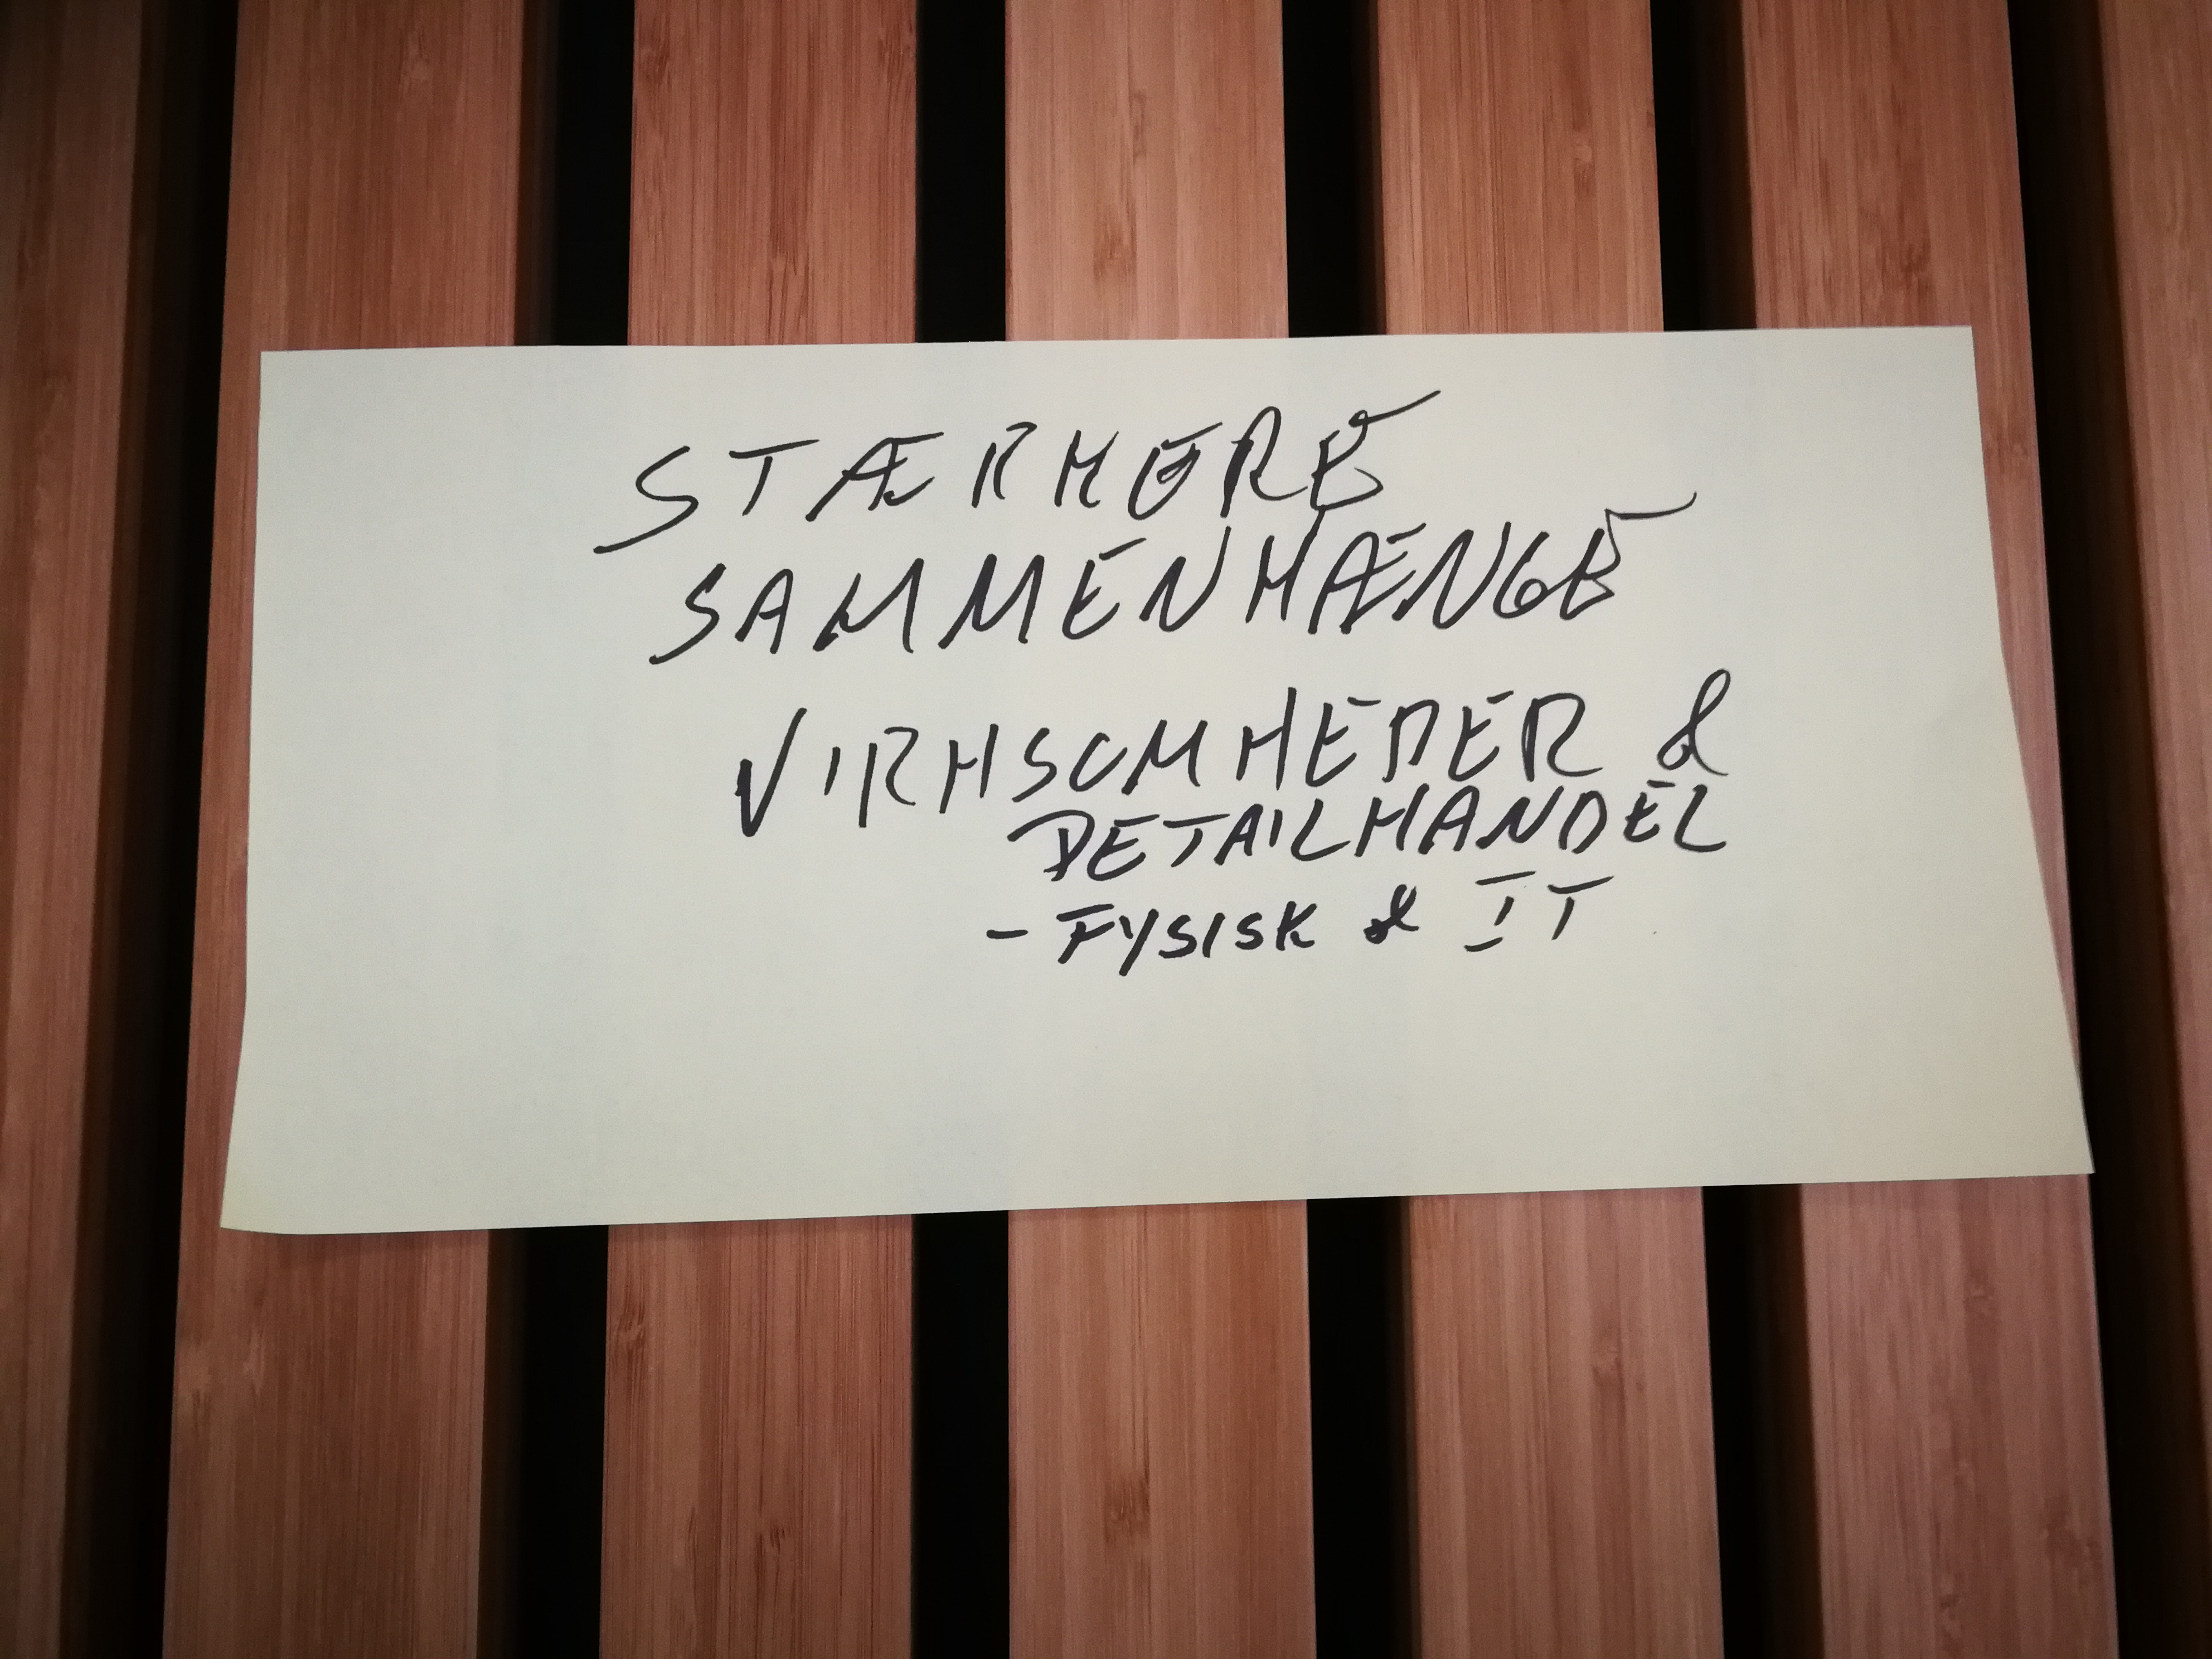 STÆRKERE
SAMMENHÆNGE
VIRKSOMHEDER &
DETAILHANDEL
- FYSISK & IT